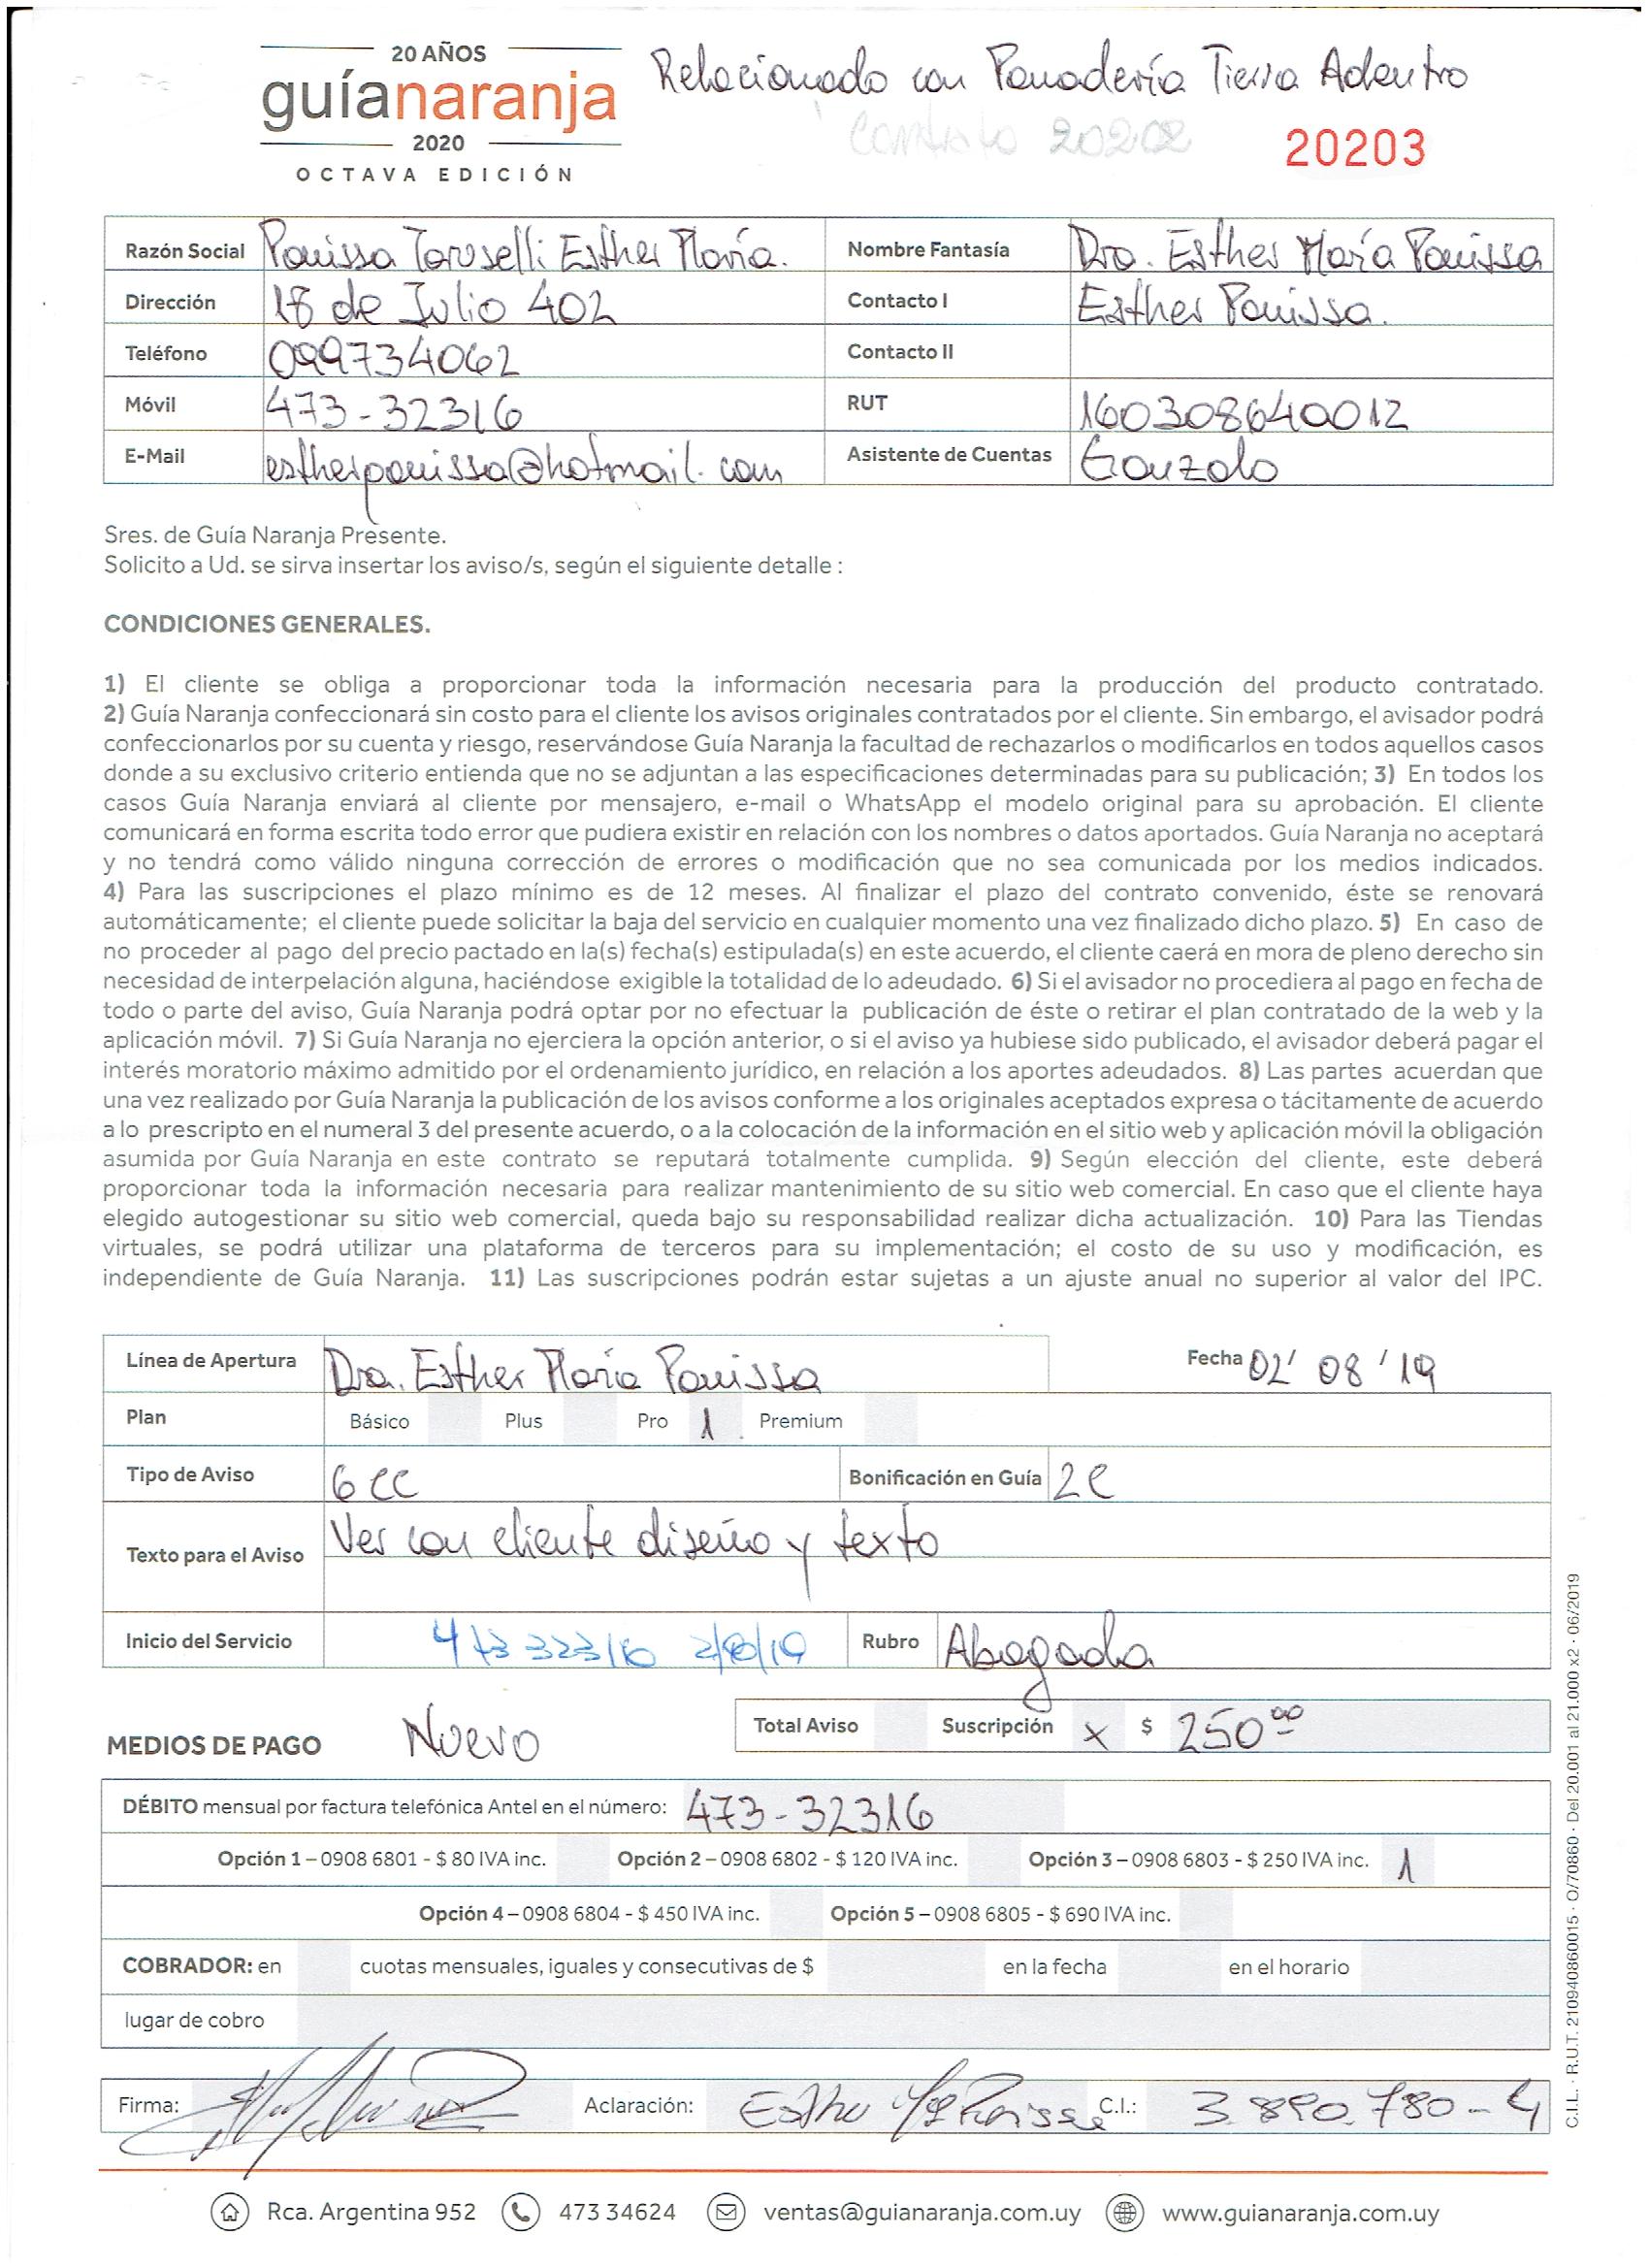 20 AÑOS
guíanaranja
2020
OCTAVA EDICIÓN
Relacionado con Panadería Tierra Adentro
Contrato 20202
20203
Razón Social Panissa Toruselli Esther María.
Nombre Fantasía Dra. Esther María Panissa
Dirección 18 de Julio 402
Contacto I Esther Panissa.
Teléfono 099734062
Contacto II
Móvil 473-32316
RUT 160308640012
E-Mail estherpanissa@hotmail.com
Asistente de Cuentas Gonzalo
Sres. de Guía Naranja Presente.
Solicito a Ud. se sirva insertar los aviso/s, según el siguiente detalle :
CONDICIONES GENERALES.
1) El cliente se obliga a proporcionar toda la información necesaria para la producción del producto contratado.
2) Guía Naranja confeccionará sin costo para el cliente los avisos originales contratados por el cliente. Sin embargo, el avisador podrá
confeccionarlos por su cuenta y riesgo, reservándose Guía Naranja la facultad de rechazarlos o modificarlos en todos aquellos casos
donde a su exclusivo criterio entienda que no se adjuntan a las especificaciones determinadas para su publicación; 3) En todos los
casos Guía Naranja enviará al cliente por mensajero, e-mail o WhatsApp el modelo original para su aprobación. El cliente
comunicará en forma escrita todo error que pudiera existir en relación con los nombres o datos aportados. Guía Naranja no aceptará
y no tendrá como válido ninguna corrección de errores o modificación que no sea comunicada por los medios indicados.
4) Para las suscripciones el plazo mínimo es de 12 meses. Al finalizar el plazo del contrato convenido, éste se renovará
automáticamente; el cliente puede solicitar la baja del servicio en cualquier momento una vez finalizado dicho plazo. 5) En caso de
no proceder al pago del precio pactado en la(s) fecha(s) estipulada(s) en este acuerdo, el cliente caerá en mora de pleno derecho sin
necesidad de interpelación alguna, haciéndose exigible la totalidad de lo adeudado. 6) Si el avisador no procediera al pago en fecha de
todo o parte del aviso, Guía Naranja podrá optar por no efectuar la publicación de éste o retirar el plan contratado de la web y la
aplicación móvil. 7) Si Guía Naranja no ejerciera la opción anterior, o si el aviso ya hubiese sido publicado, el avisador deberá pagar el
interés moratorio máximo admitido por el ordenamiento jurídico, en relación a los aportes adeudados. 8) Las partes acuerdan que
una vez realizado por Guía Naranja la publicación de los avisos conforme a los originales aceptados expresa o tácitamente de acuerdo
a lo prescripto en el numeral 3 del presente acuerdo, o a la colocación de la información en el sitio web y aplicación móvil la obligación
asumida por Guía Naranja en este contrato se reputará totalmente cumplida. 9) Según elección del cliente, este deberá
proporcionar toda la información necesaria para realizar mantenimiento de su sitio web comercial. En caso que el cliente haya
elegido autogestionar su sitio web comercial, queda bajo su responsabilidad realizar dicha actualización. 10) Para las Tiendas
virtuales, se podrá utilizar una plataforma de terceros para su implementación; el costo de su uso y modificación, es
independiente de Guía Naranja. 11) Las suscripciones podrán estar sujetas a un ajuste anual no superior al valor del IPC.
Línea de Apertura Dra. Esther María Panissa
Fecha 02/ 08 / 19
Plan Básico Plus Pro 1 Premium
Tipo de Aviso 6 CC
Bonificación en Guía 2C
Texto para el Aviso Ver con cliente diseño y texto
Inicio del Servicio 473 32316 2/10/19
Rubro Abogada
MEDIOS DE PAGO Nuevo
Total Aviso Suscripción X $ 250 00
DÉBITO mensual por factura telefónica Antel en el número: 473-32316
Opción 1 – 0908 6801 - $ 80 IVA inc. Opción 2 – 0908 6802 - $ 120 IVA inc. Opción 3 – 0908 6803 - $ 250 IVA inc. 1
Opción 4 – 0908 6804 - $ 450 IVA inc. Opción 5 – 0908 6805 - $ 690 IVA inc.
COBRADOR: en cuotas mensuales, iguales y consecutivas de $ en la fecha en el horario
lugar de cobro
Firma: Aclaración: Esther Mª Panissa C.I.: 3.890.780-4
Rca. Argentina 952 473 34624 ventas@guianaranja.com.uy www.guianaranja.com.uy
C.I.L. · R.U.T. 210940860015 · O/70860 · Del 20.001 al 21.000 x2 · 06/2019